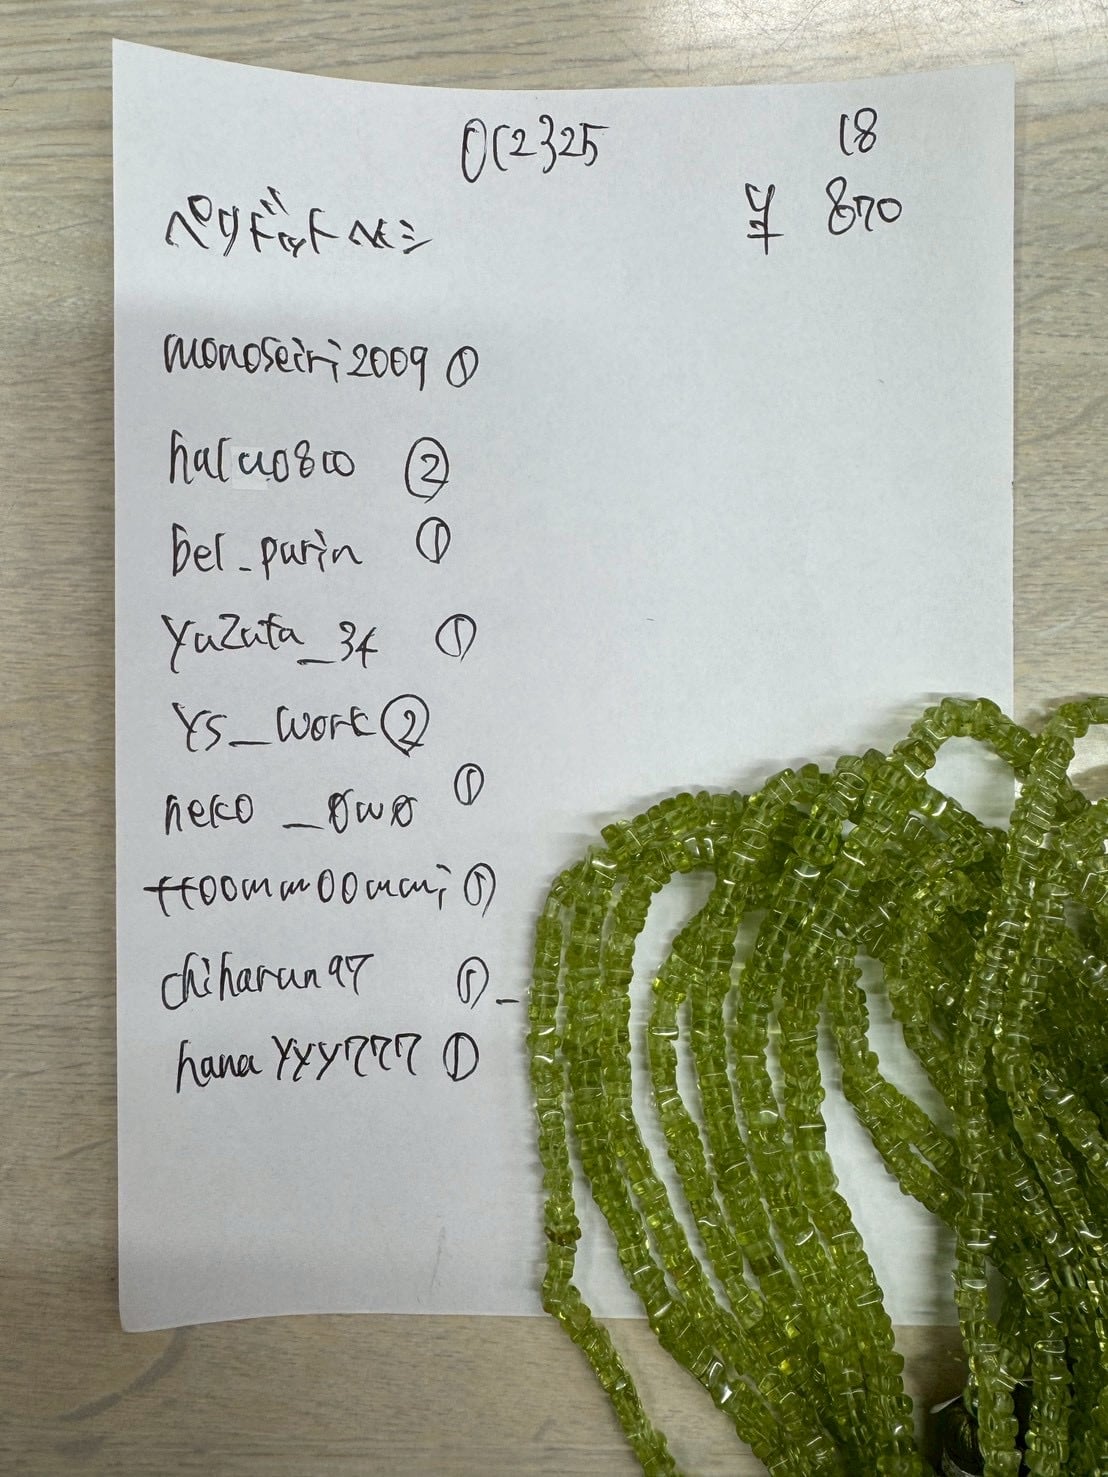 012325 18
ペリドットヘキシ ¥ 870
monoseiri2009 ①
haluo800 ②
bel_purin ①
yuzuta_34 ①
ys_work ②
neko_owo ①
tt00mm00mmi ①
chiharun97 ①
hanayyy777 ①